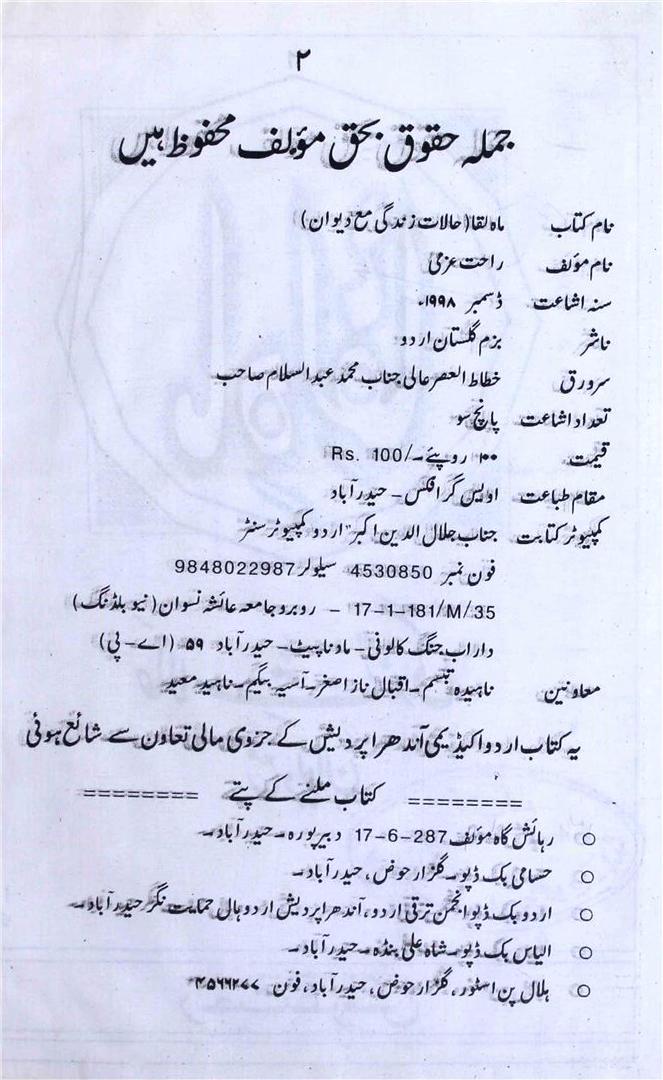 ۲
جملہ حقوق بحق مؤلف محفوظ ہیں
نام کتاب ماہ لقا (حالات زندگی مع دیوان)
نام مؤلف راحت عزمی
سنہ اشاعت ڈسمبر ۱۹۹۸ء
ناشر بزم گلستان اردو
سرورق خطاط العصر عالی جناب محمد عبدالسلام صاحب
تعداد اشاعت پانچ سو
قیمت ۱۰۰ روپئے۔/Rs. 100
مقام طباعت اویس گرافکس - حیدرآباد
کمپیوٹر کتابت جناب جلال الدین اکبر "اردو کمپیوٹر سنٹر
فون نمبر 4530850 سیلولر 9848022987
17-1-181/M/35 - روبرو جامعہ عائشہ نسواں (نیو بلڈنگ)
داراب جنگ کالونی - مادناپیٹ - حیدرآباد ۵۹ (اے - پی)
معاونین ناہیدہ تبسم - اقبال ناز اصغر - آسیہ بیگیم - ناہید معید
یہ کتاب اردو اکیڈیمی آندھرا پردیش کے جزوی مالی تعاون سے شائع ہوئی
======== کتاب ملنے کے پتے ========
○ رہائش گاہ مؤلف 287-6-17 دبیرپورہ - حیدرآباد۔
○ حسامی بک ڈپو - گلزار حوض، حیدرآباد۔
○ اردو بک ڈپو انجمن ترقی اردو، آندھرا پردیش اردو ہال حمایت نگر حیدرآباد۔
○ الیاس بک ڈپو - شاہ علی بنڈہ - حیدرآباد۔
○ ہلال پن اسٹور، گلزار حوض، حیدرآباد، فون ۴۵۶۶۲۷۷